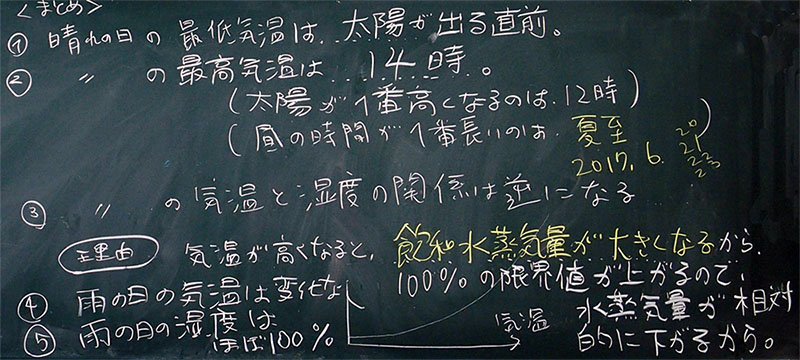 <まとめ>
① 晴れの日の最低気温は、太陽が出る直前。
② 〃 の最高気温は 14時。
(太陽が1番高くなるのは、12時)
(昼の時間が1番長いのは、夏至
2017, 6. 20 21 22)
③ 〃 の気温と湿度の関係は逆になる
理由 気温が高くなると、飽和水蒸気量が大きくなるから、
100%の限界値が上がるので、
水蒸気量が相対
的に下がるから。
④ 雨の日の気温は変化な
⑤ 雨の日の湿度は
ほぼ100%
気温